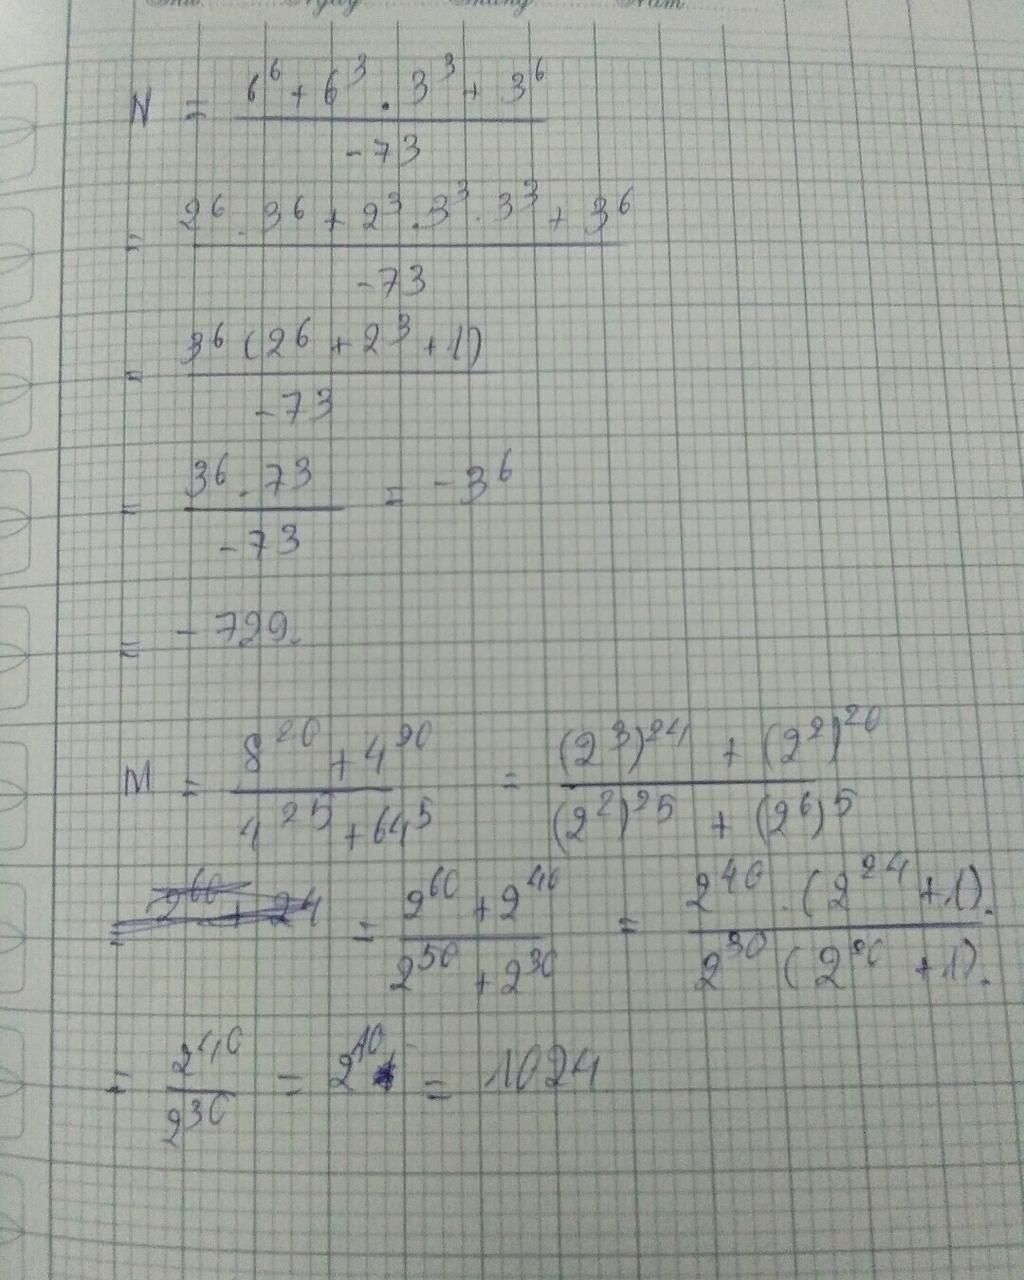 N = (6^6 + 6^3 . 3^3 + 3^6) / -73
= (2^6 . 3^6 + 2^3 . 3^3 . 3^3 + 3^6) / -73
= 3^6 (2^6 + 2^3 + 1) / -73
= (3^6 . 73) / -73 = -3^6
= -729.
M = (8^20 + 4^20) / (4^25 + 64^5) = ((2^3)^24 + (2^2)^20) / ((2^2)^25 + (2^6)^5)
= (2^60 + 2^40) / (2^50 + 2^30) = 2^40 . (2^24 + 1). / 2^30 (2^20 + 1).
= 2^40 / 2^30 = 2^10 = 1024